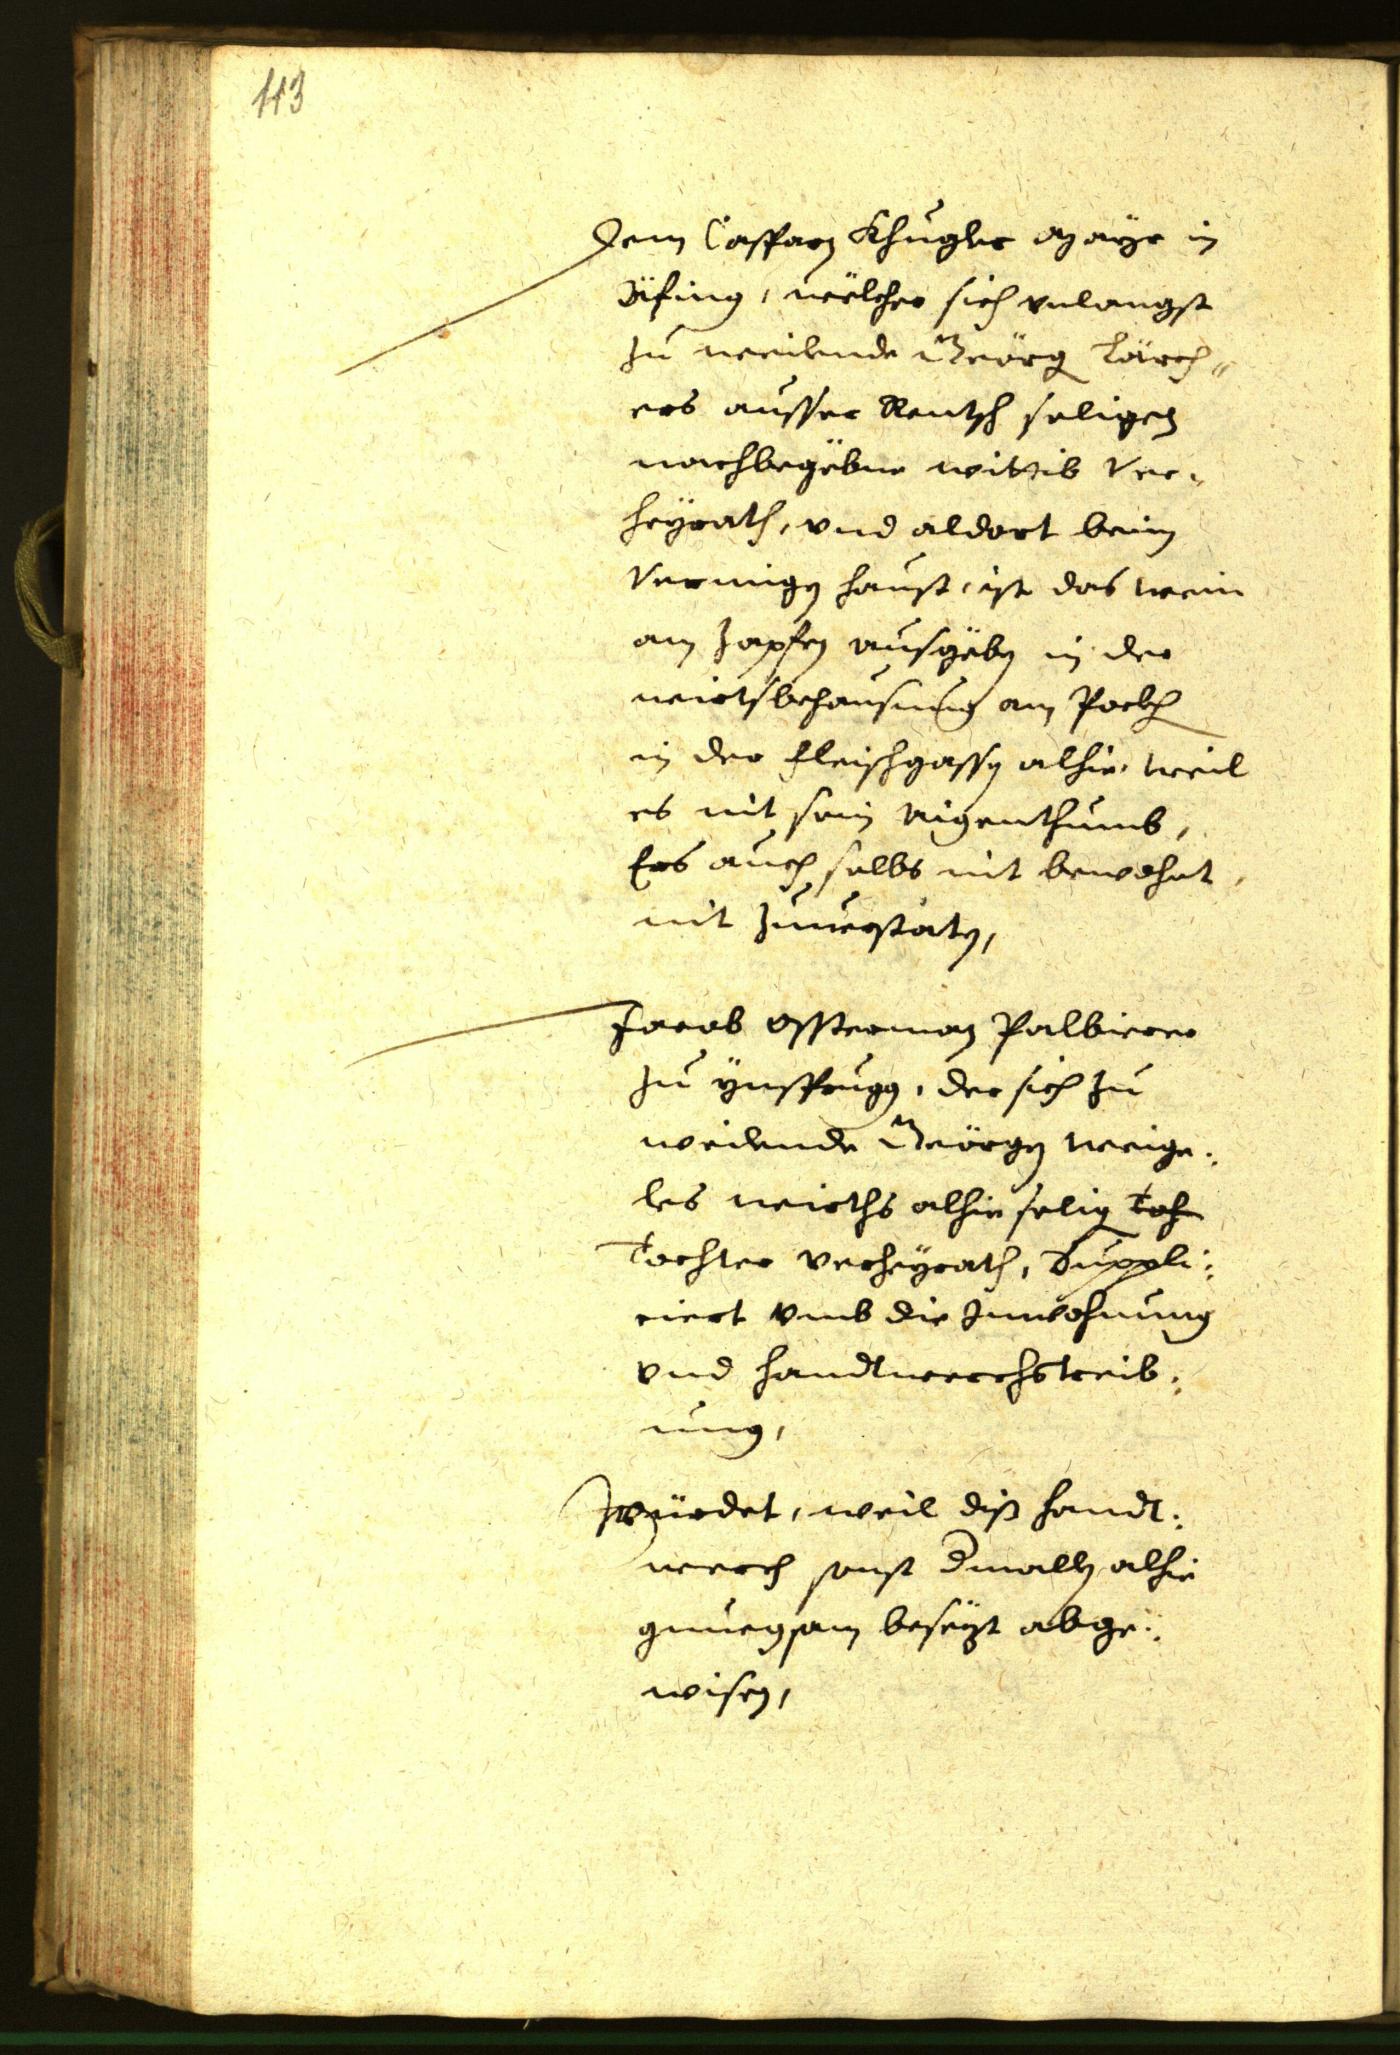 113
dem Casparn Khugler Mayr in
Jäfing, wëlcher sich vnlangst
zu weilende Geörg Lärch„
ers ausser Rentsch seligen
nachbegëbne wittib Ver„
heyrath, vnd aldort beim
Vermigen haust, ist das wein
am Zapfen ausgëben in der
wirtsbehausung am Pockh
in der fleischgassen alhie, weil
es nit sein aigenthumb,
Ers auch selbs nit bewohnt,
nit zuuerstaten,
Jacob Ossterman Palbierer
zu Ynsprugg, der sich zu
weilende Geörgen weige„
les wierths alhie selig Toh
Tochter verheyrath, Suppli„
ciert vmb die Jnwohnung
vnd handtwerchstreib„
ung,
Würdet, weil diß handt„
werch sonst Dmalln alhie
gnuegsam besezt abge„
wisen,